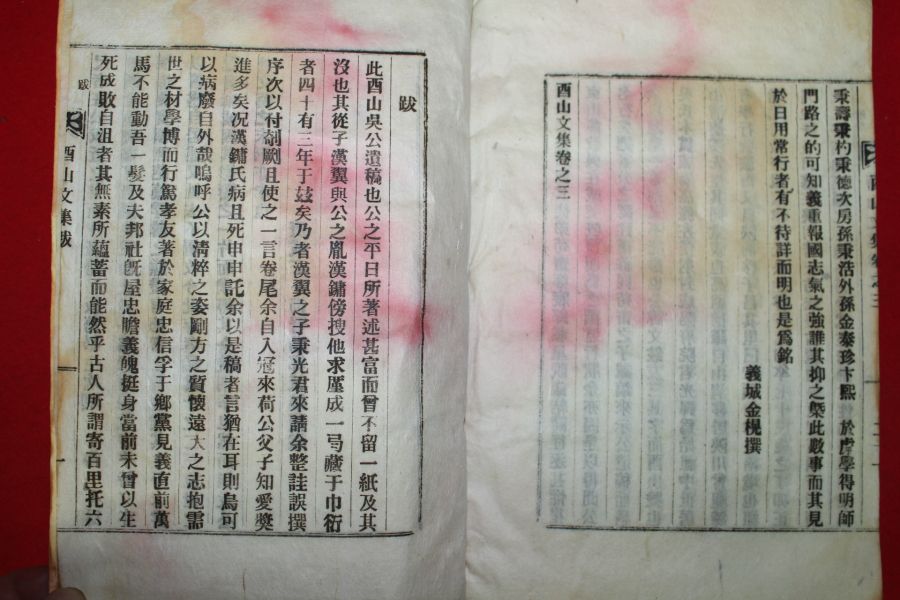 秉壽秉杓秉德次房孫秉浩外孫金泰珍卞熙 於虖學得明師
門路之的可知義重報國志氣之強誰其抑之槩此數事而其見
於日用常行者有不待詳而明也是爲銘
義城金梘撰
酉山文集卷之三
跋
此酉山吳公遺稿也公之平日所著述甚富而曾不留一紙及其
沒也其從子漢翼與公之胤漢鏞傍搜他求厪成一弓藏于巾衍
者四十有三年于玆矣乃者漢翼之子秉光君來請余整註誤撰
序次以付剞劂且使之一言卷尾余自入冠來荷公父子知愛奬
進多矣况漢鏞氏病且死申申託余以是稿者言猶在耳則烏可
以病廢自外哉嗚呼公以淸粹之姿剛方之質懷遠大之志抱需
世之材學博而行篤孝友著於家庭忠信孚于鄕黨見義直前萬
馬不能動吾一髮及夫邦社旣屋忠膽義魄挺身當前未曾以生
死成敗自沮者其無素所蘊蓄而能然乎古人所謂寄百里托六
酉山文集跋
跋
一